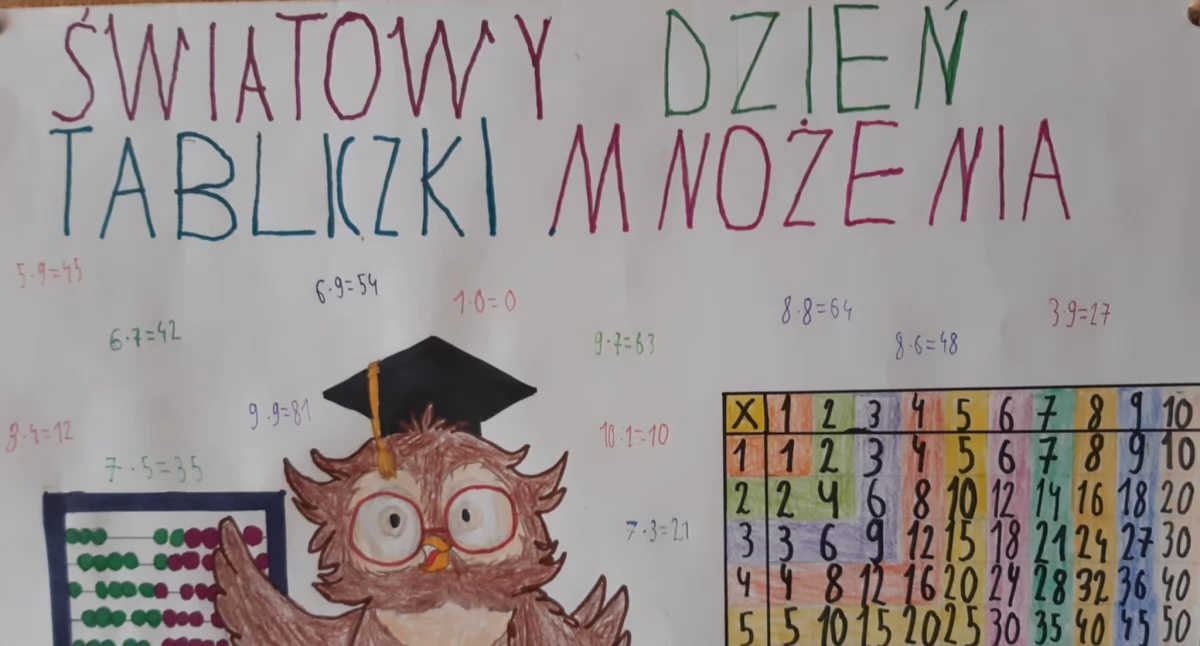 ŚWIATOWY DZIEŃ
TABLICZKI MNOŻENIA
5·9=45
6·9=54
1·0=0
8·8=64
3·9=27
6·7=42
9·7=63
8·6=48
9·9=81
3·4=12
10·1=10
7·5=35
7·3=21
X 1 2 3 4 5 6 7 8 9 10
1 1 2 3 4 5 6 7 8 9 10
2 2 4 6 8 10 12 14 16 18 20
3 3 6 9 12 15 18 21 24 27 30
4 4 8 12 16 20 24 28 32 36 40
5 5 10 15 20 25 30 35 40 45 50